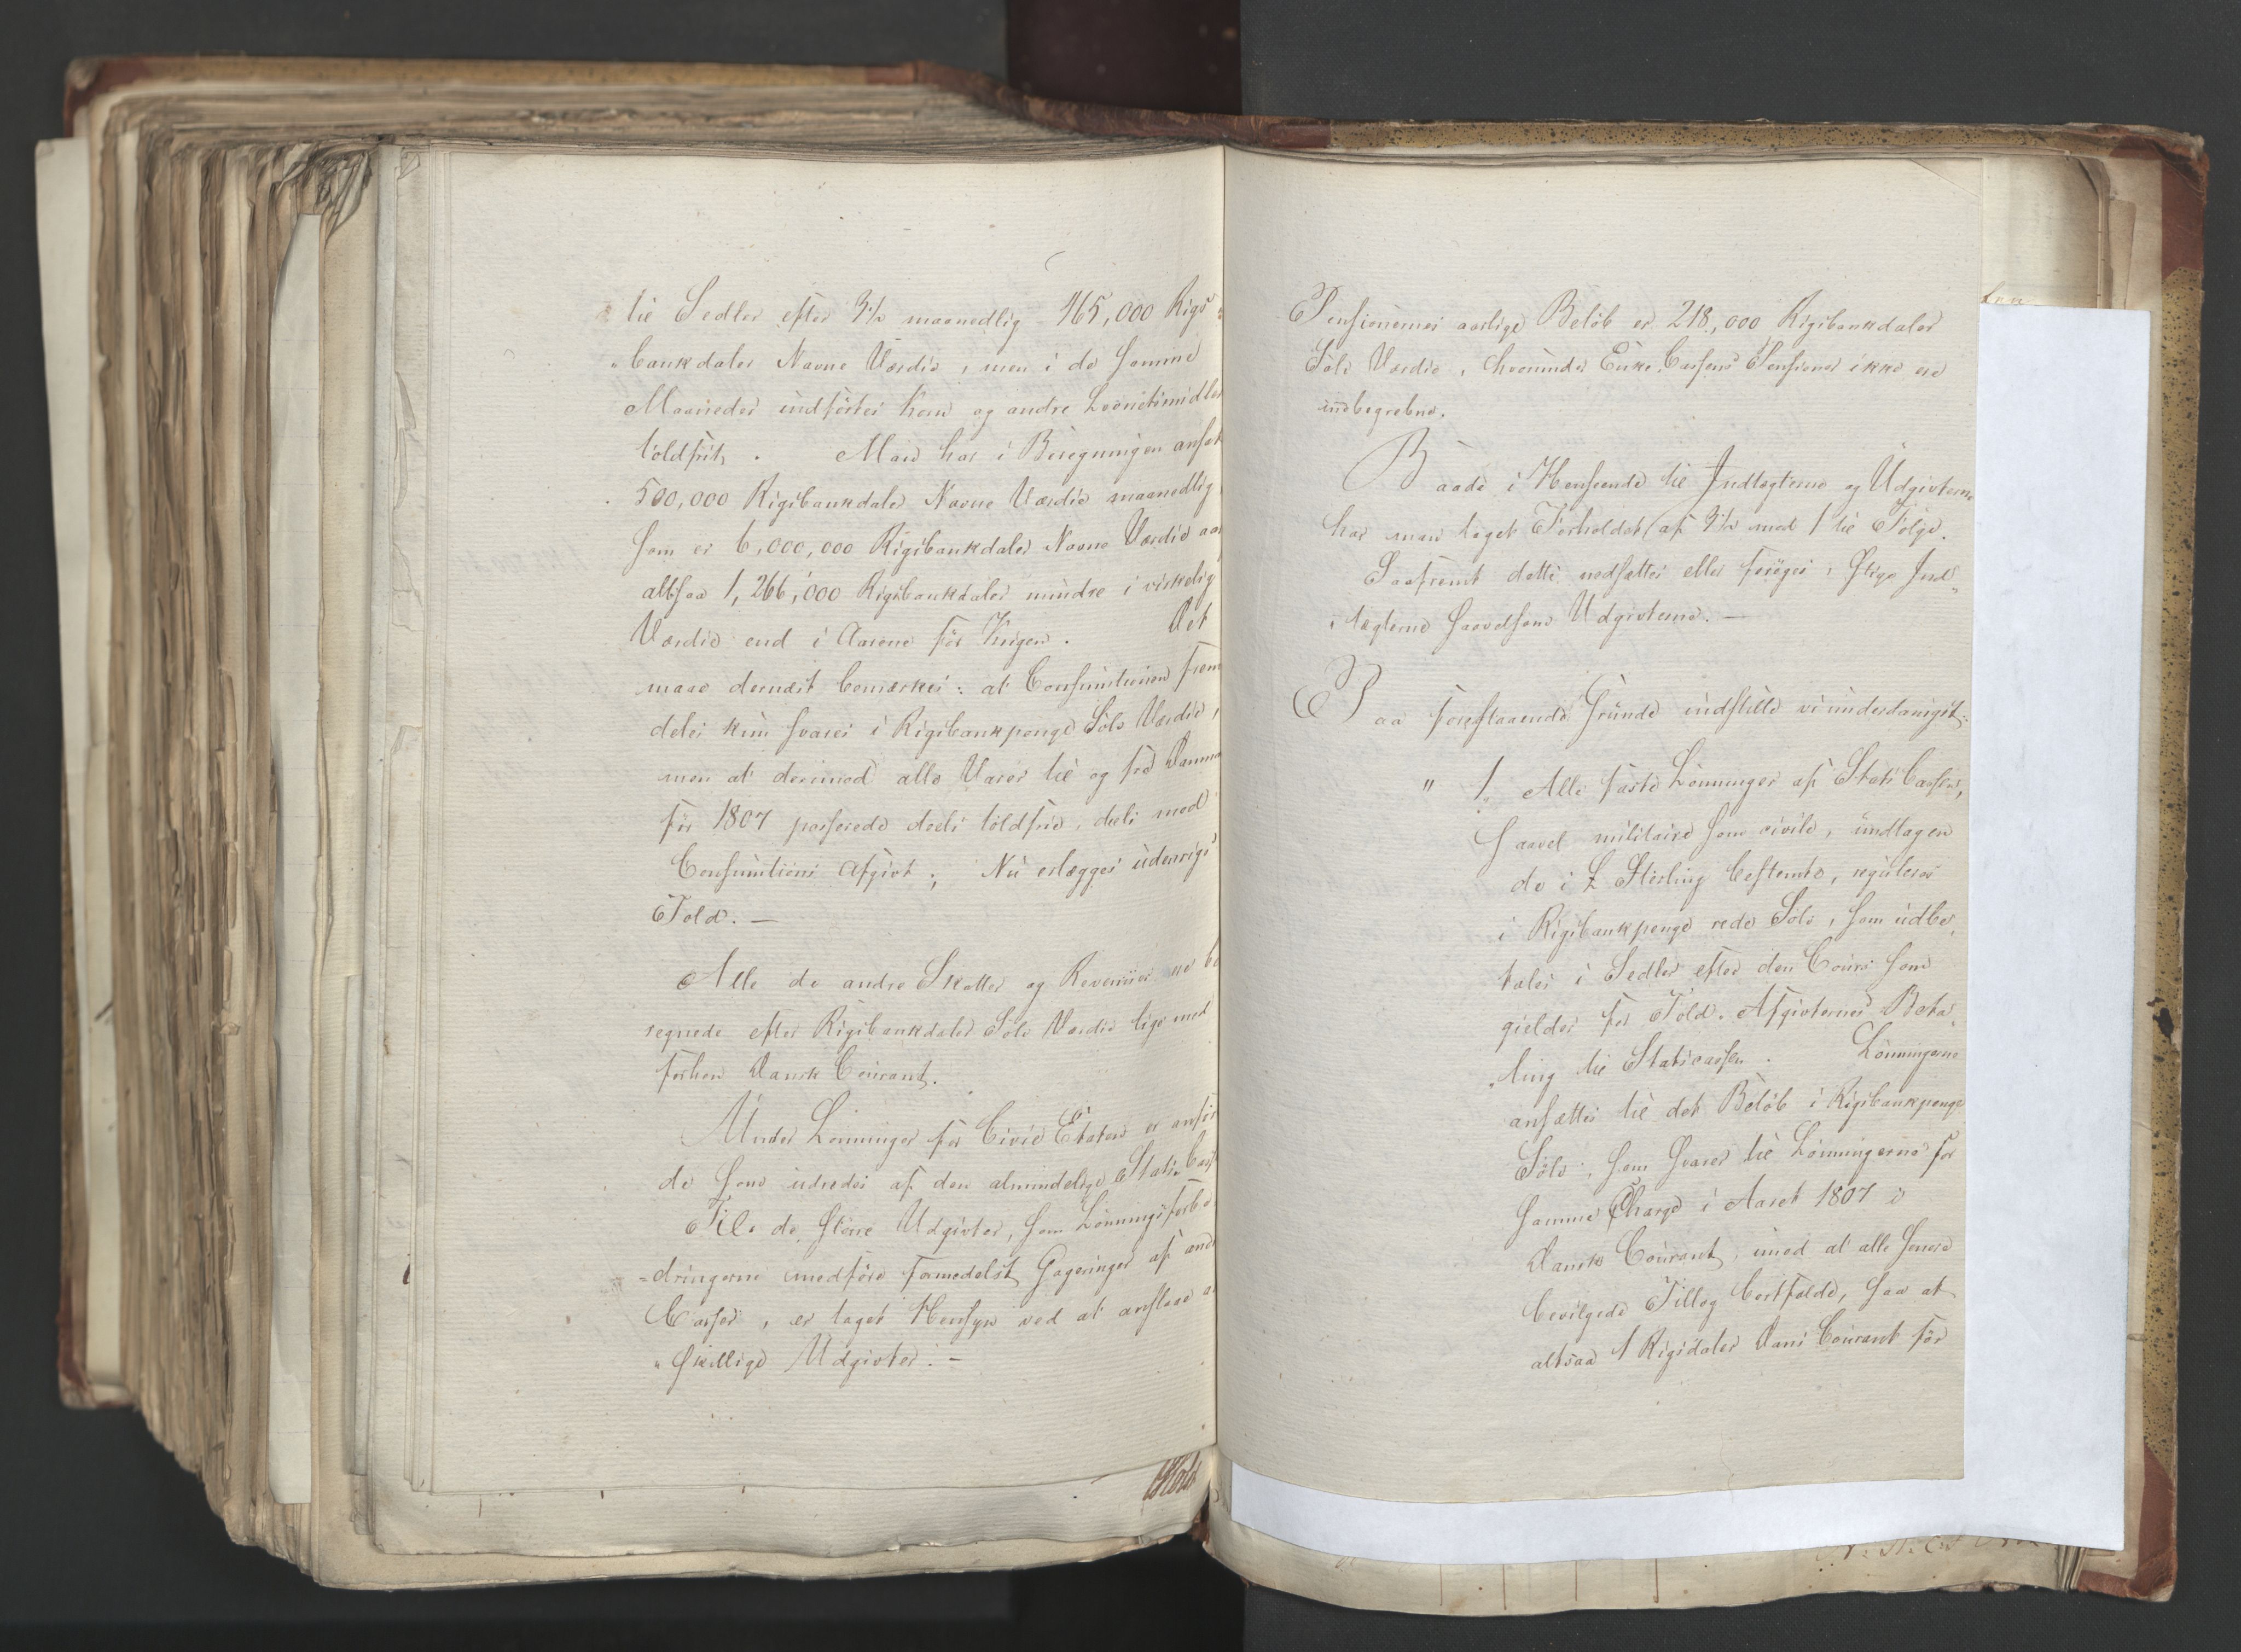 til Sedler efter 3½ maanedlig 465,000 Rigs
bankdaler Navne Værdie, men i de samme
Maaneder indførtes Korn og andre Levnetsmidler
toldfrit. Man har i Beregningen ansat
500,000 Rigsbankdaler Navne Værdie maanedlig
som er 6,000,000 Rigsbankdaler Navne Værdie aar
altsaa 1,266,000 Rigsbankdaler mindre i virkelig
Værdie end i Aarene før Krigen. Det
maae dernæst bemærkes: at Consumtionen frem
deles kun svares i Rigsbankpenge Sølv Værdie,
men at derimod alle Varer til og fra Danma
før 1807 passerede deels toldfrie, deels mod
Consumtions Afgivt; Nu erlægges udenrigs
Told. —
Alle de andre Skatter og Revenüer ere be
regnede efter Rigsbankdaler Sølv Værdie lige med
forhen Dansk Courant.
Under Lønninger for Civil Etaten er anfør
de som udredes af den almindelige Stats Cass
Til de større Udgivter, som Lønningsforbe
=dringerne medføre formedelst Gageringer af andr
Casser, er taget Hensyn ved at anslaae a
"skillige Udgivter. —
Pensionernes aarlige Beløb er 218,000 Rigsbankdaler
Sølv Værdie, hvorunder Enke Cassens Pensioner ikke ere
indbegrebne.
Baade i Henseende til Indtægterne og Udgivterne
har man taget Forholdet af 3½ mod 1 til Følge.
Saafremt dette nedsættes eller forøges, stige Ind
tægterne saavelsom Udgivterne. —
Paa forestaaende Grunde indstille vi underdanigst:
" 1. Alle faste Lønninger af Stats Cassen,
saavel militaire som civile, undtagen
de i £ Sterling bestemte, reguleres
i Rigsbankpenge rede Sølv, som udbe,
tales i Sedler efter den Cours som
gielder for Told-Afgivternes Beta,
"ling til Statscassen. Lønningerne
ansættes til det Beløb i Rigsbankpenge
Sølv, som svarer til Lønningerne for
samme Charge i Aaret 1807 i
Dansk Courant, imod at alle senere
bevilgede Tillæg bortfalde, saa at
altsaa 1 Rigsdaler Dans Courant før